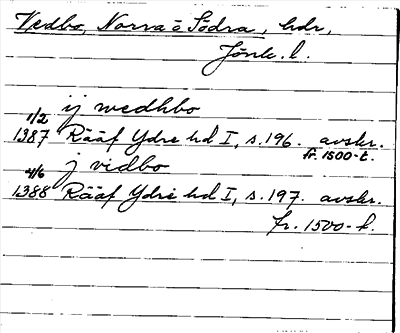 Vedbo, Norra o Södra, hdr,
Jönk. l.
ij wedhbo
1/2
1387 Rääf Ydre hd I, s. 196. avskr.
fr. 1500-t.
j vidbo
4/6
1388 Rääf Ydre hd I, s. 197. avskr.
fr. 1500-t.